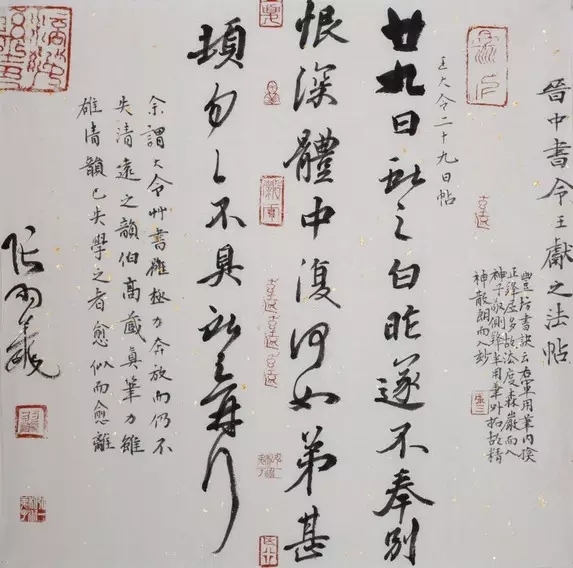 晉中書令王獻之法帖
豐坊書訣云右軍用筆內擫
正鋒居多故法度森嚴而入
神子敬側鋒半用筆外拓故精
神散朗而入妙
王大令二十九日帖
廿九日獻之白昨遂不奉別
恨深體中復何如弟甚
頓勿々不具獻之再拜
余謂大令艸書雖極力奔放而仍不
失清遠之韻伯高藏真筆力雖
雄清韻已失學之者愈似而愈離